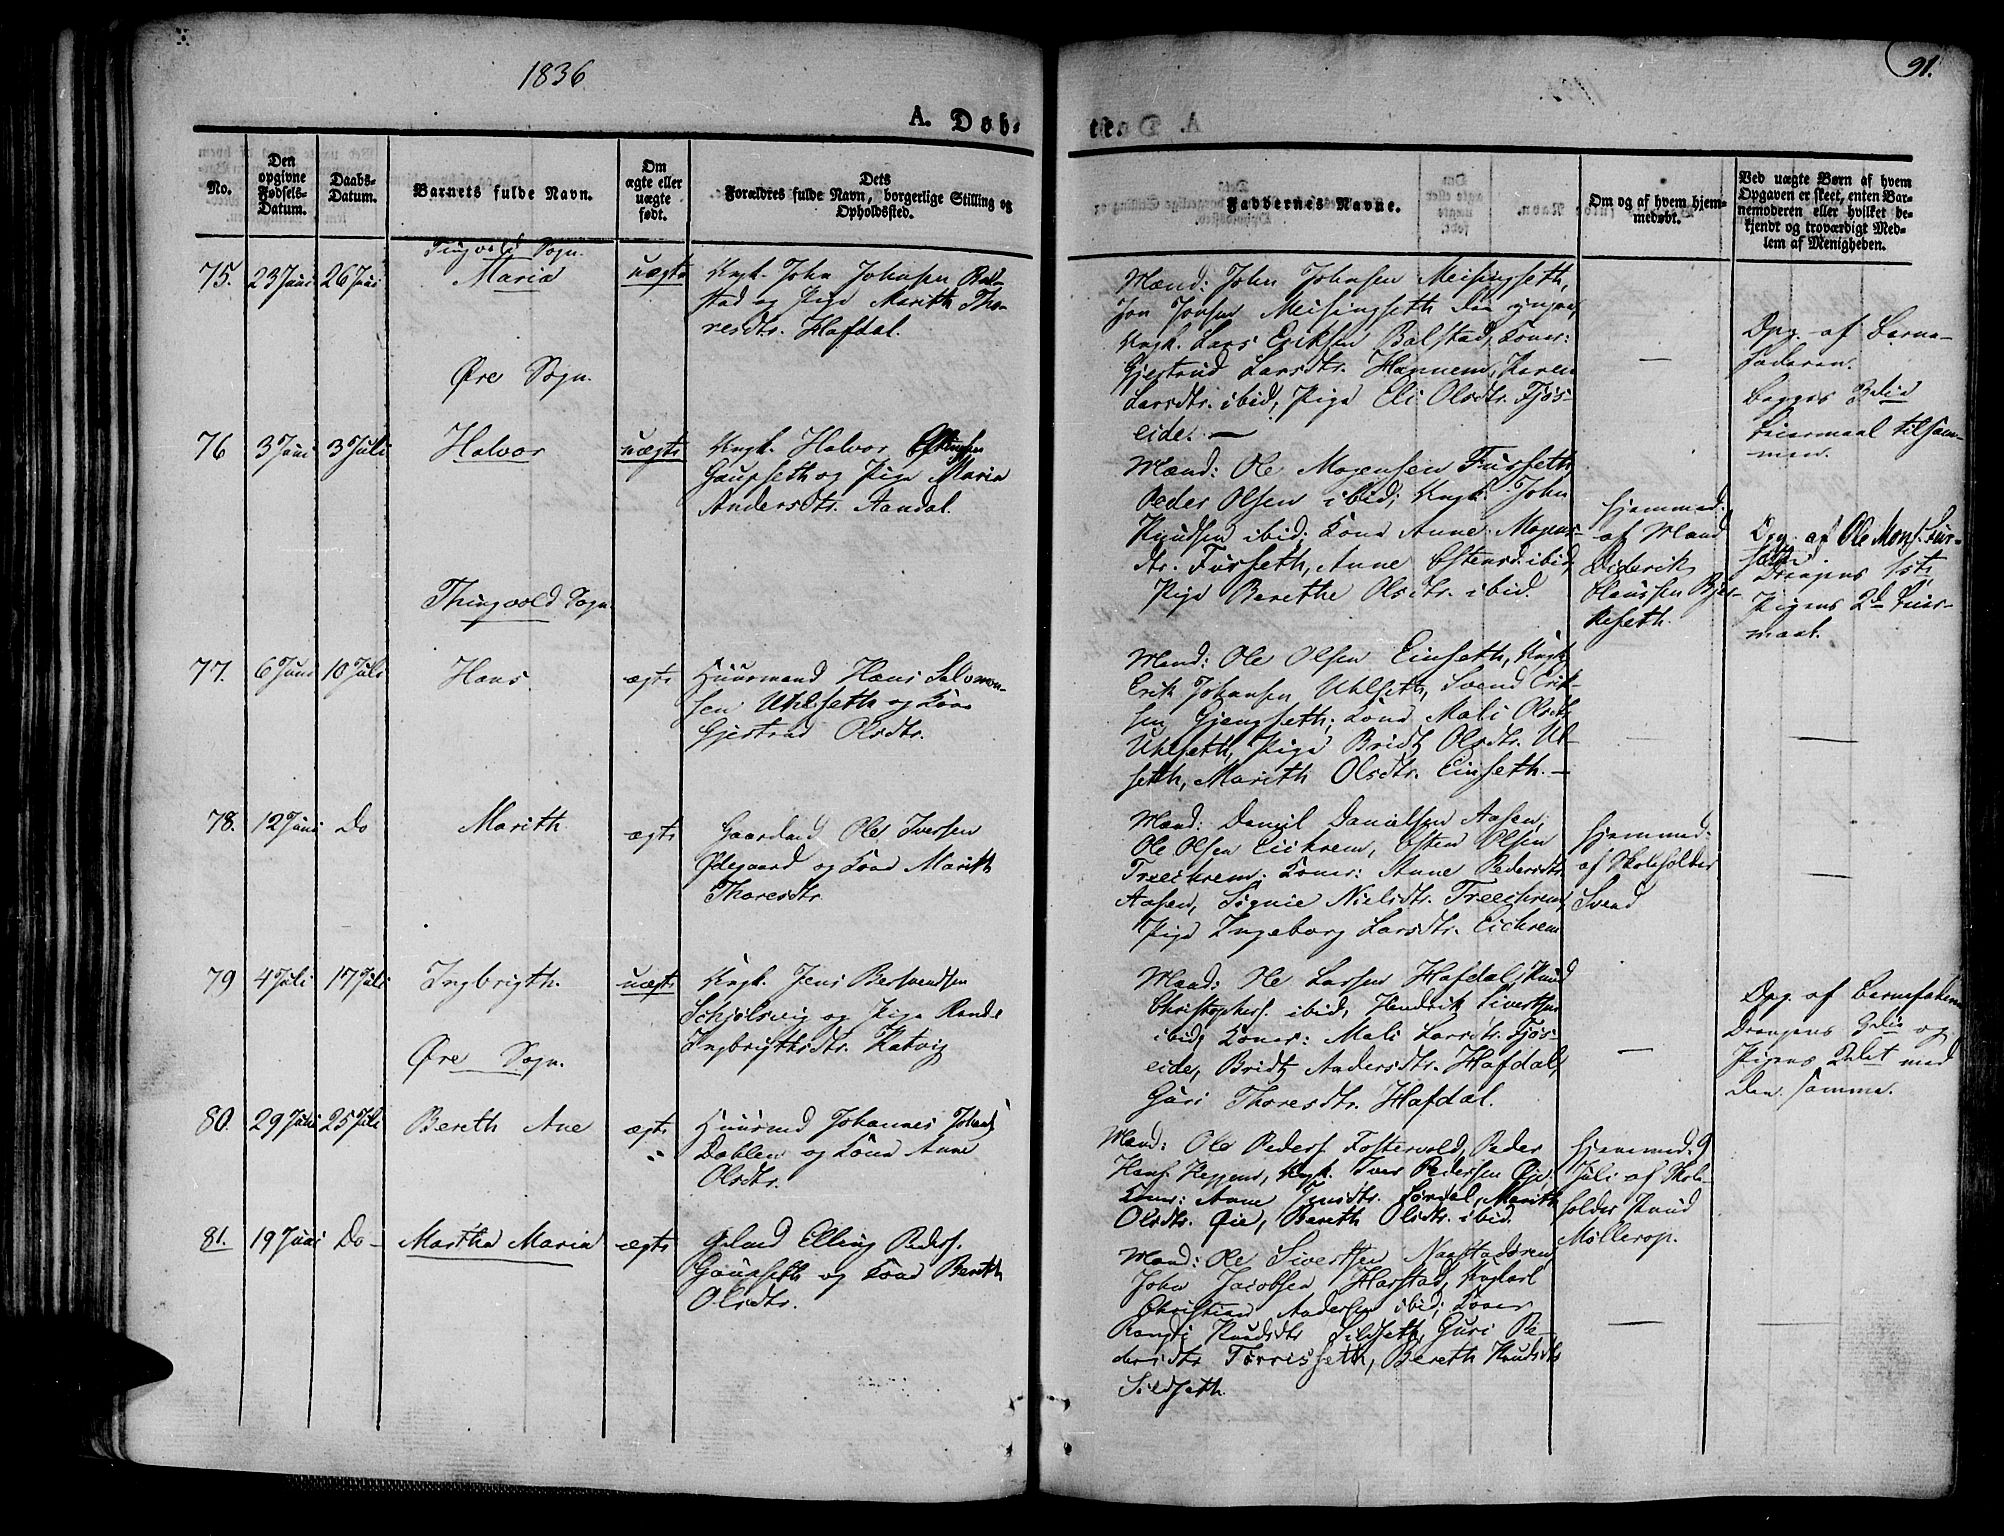 1836
91.
A. Døb-
te
No.
Den
opgivne
Fødsels-
Datum.
Daabs-
Datum.
Barnets fulde Navn.
Om
ægte eller
uægte
født.
Dets
Forældres fulde Navn, borgerlige Stilling og
Opholdssted.
Faddernes Navne.
Om og af hvem hjem-
medøbt.
Ved uægte Børn af hvem
Opgaven er skeet, enten Bar-
nemoderen eller hvilket be-
kjendt og troværdigt Med-
lem af Menigheden.
Tingvold Sogn.
75. 23 Juni 26 Juni Maria uægte
Ungk. John Johnsen Bal-
stad og Pige Marith Tho-
resdtr. Hafdal.
Mænd: John Johnsen Meisingseth,
Jon Jonsen Meisingseth den yngre,
Ungk. Lars Eriksen Balstad, Koner:
Gjertrud Larsdtr. Hannem, Karen
Larsdtr. ibid, Pige Eli Olsdtr. Fjøs-
eide. —
—
Opg. af Barne-
faderen.
Begges
Leiermaal tilsam-
men.
Øre Sogn.
76 3 Juni 3 Juli Halvor uægte
Ungk. Halvor
Gaupseth og Pige Maria
Andersdtr. Aandal.
Mænd: Ole Mogensen Furseth,
Peder Olsen ibid; Ungk. John
Knudsen ibid; Kone Anne Mogens-
dtr. Furseth, Anne Estensd. ibid,
Pige Berethe Olsdtr. ibid.
Hjemmed.
af Mand
Diderik
Claussen Bjer-
keseth.
Opg. af Ole Mons. Fur-
seth.
Drengens 1ste
Pigens 2d Leier-
maal.
Thingvold Sogn
77. 6 Juni 10 Juli Hans. ægte
Huusmand Hans Salomon-
sen Uhlseth og Kone
Gjertrud Olsdtr.
Mænd: Ole Olsen Einseth, Ungk.
Erik Johansen Uhlseth, Svend Erik-
sen Gjengseth; Kone Mali Olsdtr.
Uhlseth, Pige Bridt Olsdtr. Ul-
seth, Marith Olsdtr. Einseth. —
—
—
78. 12 Juni Do Marith ægte
Gaardmd Ole Iversen
Ødegaard og Kone Marith
Thoresdtr.
Mænd: Daniel Danielsen Aasen,
Ole Olsen Eichrem, Esten Olsen
Treechrem; Koner: Anne Pedersdtr.
Aasen, Signie Nielsdtr. Treechrem,
Pige Ingeborg Larsdtr. Eichrem
Hjemmed:
af Skoleholder
Svend
—
79 4 Juli 17 Juli Ingbrigth. uægte
Ungk. Jens Bersvendsen
Schjølsvig og Pige Rande
Ingbrigthsdtr. Ratvig
Mænd: Ole Larsen Hafdal, Knud
Christophers. ibid, Hendrik Sivertsen
ibid, Koner: Mali Larsdtr. Fjøs-
eide, Bridt Andersdtr. Hafdal,
Guri Thoresdtr. Hafdal.
—
Opg. af Barnefaderen
Drengens og
Pigens 2det med
den samme.
Øre Sogn.
80. 29 Juni 25 Juli Bereth Ane ægte
Huusmd Johannes Johans.
Dahlen og Kone Anne
Olsdtr.
Mænd: Ole Peders. Fostervold, Peder
Hans. Heggem, Ungk. Iver Pedersen Øie,
Koner: Anne Jensdtr. Sørdal, Marith
Olsdtr. Øie, Bereth Olsdtr. ibid.
Hjemmed. 9
Juli af Skole-
holder Knud
Møllerop.
81. 19 Juni Do — Martha Maria ægte
Gaardmd Elling Peders.
Gaupseth og Kone Bereth
Olsdtr.
Mænd: Ole Sivertsen Naastadøren,
John Jacobsen Harstad, Ungkarl
Christian Andersen ibid; Koner
Randi Knudsdtr. Sildseth, Guri Pe-
dersdtr. Torrisseth, Bereth Knudsdtr.
Sildseth.
—
—